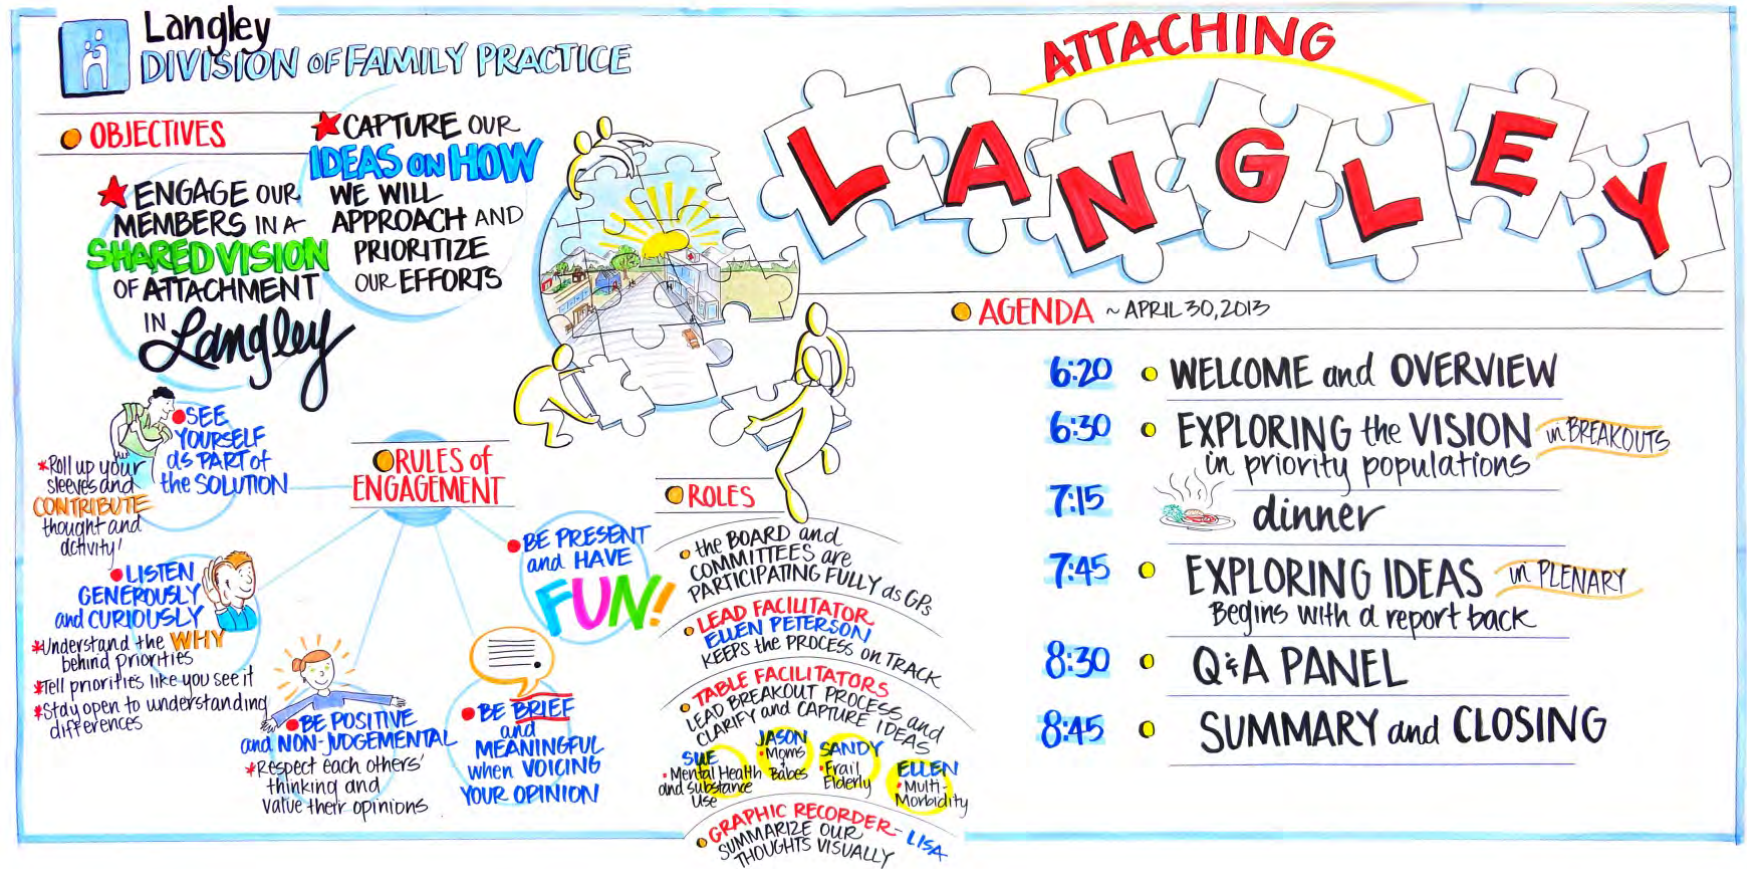 Langley
DIVISION OF FAMILY PRACTICE
OBJECTIVES
ENGAGE OUR
MEMBERS IN A
SHARED VISION
OF ATTACHMENT
IN
Langley
CAPTURE OUR
IDEAS ON HOW
WE WILL
APPROACH AND
PRIORITIZE
OUR EFFORTS
RULES of
ENGAGEMENT
SEE
YOURSELF
as PART of
the SOLUTION
*Roll up your
sleeves and
CONTRIBUTE
thought and
activity!
LISTEN
GENEROUSLY
and CURIOUSLY
*Understand the WHY
behind priorities
*Tell priorities like you see it
*Stay open to understanding
differences
BE POSITIVE
and NON-JUDGEMENTAL
*Respect each others'
thinking and
value their opinions
BE BRIEF
and
MEANINGFUL
when VOICING
YOUR OPINION
BE PRESENT
and HAVE
FUN!
ROLES
the BOARD and
COMMITTEES are
PARTICIPATING FULLY as GPs
LEAD FACILITATOR
ELLEN PETERSON
KEEPS the PROCESS on TRACK
TABLE FACILITATORS
LEAD BREAKOUT PROCESS and
CLARIFY and CAPTURE IDEAS
SUE
Mental Health
and substance
Use
JASON
Moms
+
Babes
SANDY
Frail
Elderly
ELLEN
Multi-
Morbidity
GRAPHIC RECORDER - LISA
SUMMARIZE OUR
THOUGHTS VISUALLY
ATTACHING
LANGLEY
AGENDA ~ APRIL 30, 2013
6:20 WELCOME and OVERVIEW
6:30 EXPLORING the VISION in BREAKOUTS
in priority populations
7:15 dinner
7:45 EXPLORING IDEAS in PLENARY
Begins with a report back
8:30 Q&A PANEL
8:45 SUMMARY and CLOSING